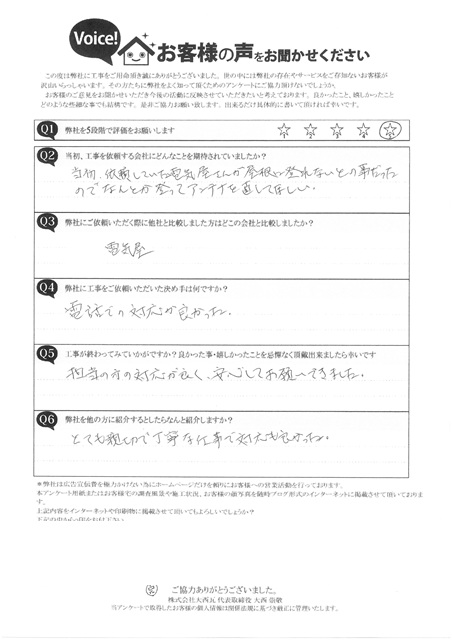 Voice!
お客様の声をお聞かせください
この度は弊社に工事をご用命頂き誠にありがとうございました。世の中には弊社の存在やサービスをご存知ないお客様が
沢山いらっしゃいます。その方たちに弊社をよく知って頂くためのアンケートにご協力頂けないでしょうか。
お客様のご意見をお聞かせいただき今後の活動に反映させていただきたいと考えております。良かったこと、嬉しかったこと
どのような些細な事でも結構です。是非ご協力お願い致します。出来るだけ具体的に書いて頂ければ幸いです。
Q1 弊社を5段階で評価をお願いします
Q2 当初、工事を依頼する会社にどんなことを期待されていましたか？
当初、依頼していた電気屋さんが屋根に登れないとの事だった
のでなんとか登ってアンテナを直してほしい。
Q3 弊社にご依頼いただく際に他社と比較しました方はどこの会社と比較しましたか？
電気屋
Q4 弊社に工事をご依頼いただいた決め手は何ですか？
電話での対応が良かった。
Q5 工事が終わってみていかがですか？良かった事・嬉しかったことを忌憚なく頂戴出来ましたら幸いです
担当の方の対応が良く、安心してお願いできました。
Q6 弊社を他の方に紹介するとしたらなんと紹介しますか？
とても親切で丁寧な仕事で対応も良かった。
＊弊社は広告宣伝費を極力かけない為にホームページだけを頼りにお客様への営業活動を行っております。
本アンケート用紙またはお客様宅の調査風景や施工状況、お客様の顔写真を随時ブログ形式のインターネットに掲載させて頂いておりま
す。
上記内容をインターネットや印刷物に掲載させて頂いてもよろしいでしょうか？
ご協力ありがとうございました。
株式会社大西瓦 代表取締役 大西
当アンケートで取得したお客様の個人情報は関係法規に基づき厳正に管理いたします。